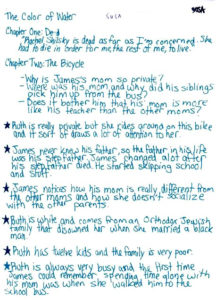 The Color of Water
Chapter One: Dead
"Rachel Shilsky is dead as far as I'm concerned. She
had to die in order for me, the rest of me, to live."
Chapter Two: The Bicycle
- Why is James's mom so private?
- Where was his mom and why did his siblings
pick him up from the bus?
- Does it bother him that his mom is more
like his teacher than the other moms?
★ Ruth is really private but she rides around on this bike
and it sort of draws a lot of attention to her.
★ James never knew his father, so the father in his life
was his stepfather. James changed alot after
his stepfather died. He started skipping school
and stuff.
★ James notices how his mom is really different from
the other moms and how she doesn't socialize
with the other parents.
★ Ruth is white and comes from an Orthodox Jewish
family that disowned her when she married a black
man.
★ Ruth has twelve kids and the family is very poor.
★ Ruth is always very busy and the first time
James could remember spending time alone with
his mom was when she walked him to the
school bus.